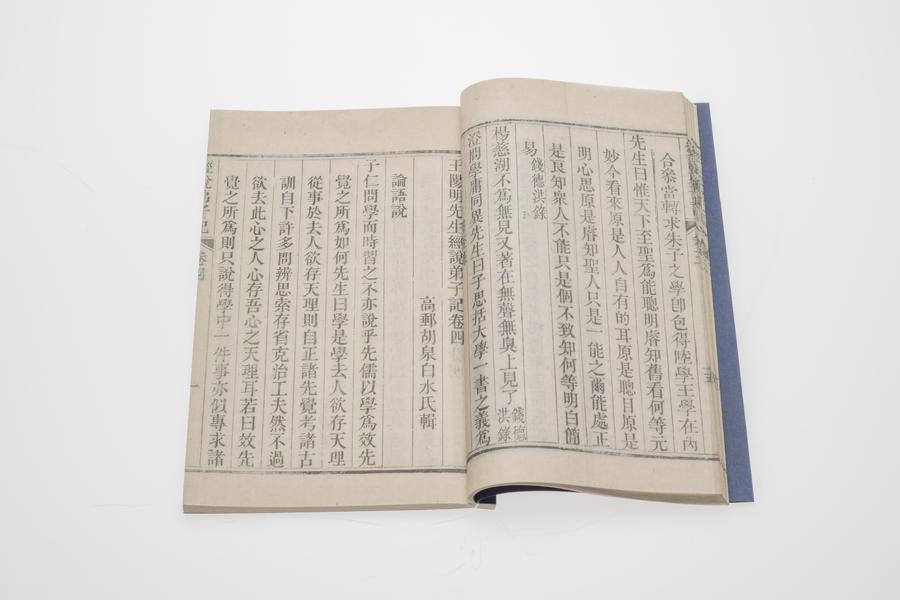 合參當轉求朱子之學卽包得陸學王學在內
先生曰惟天下至聖爲能聰明睿知舊看何等元
妙今看來原是人人自有的耳原是聰目原是
明心思原是睿知聖人只是一能之爾能處正
是良知衆人不能只是個不致知何等明白簡
易 錢德洪錄
楊慈湖不爲無見又著在無聲無臭上見了 錢德洪錄
澄問學庸同異先生曰子思括大學一書之義爲
王陽明先生經說弟子記卷四
高郵胡泉白水氏輯
論語說
子仁問學而時習之不亦說乎先儒以學爲效先
覺之所爲如何先生曰學是學去人欲存天理
從事於去人欲存天理則自正諸先覺考諸古
訓自下許多問辨思索存省克治工夫然不過
欲去此心之人心存吾心之天理耳若曰效先
覺之所爲則只說得學中一件事亦似專求諸
經說弟子記 卷四 一